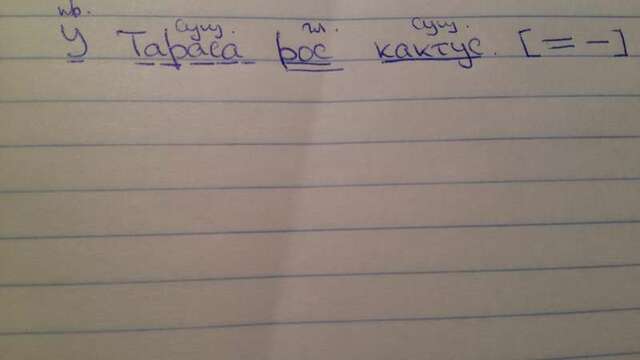 пр. сущ. гл. сущ.
У Тараса рос кактус. [= –]